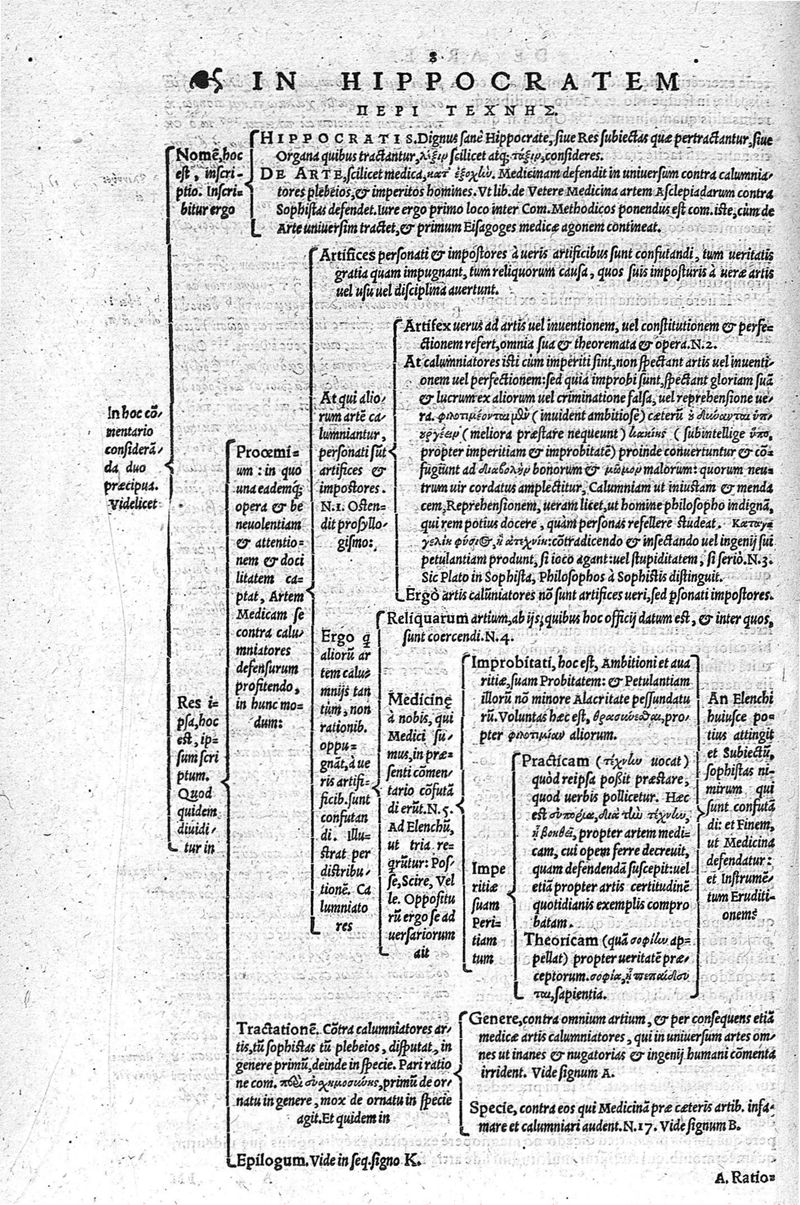 8
IN HIPPOCRATEM
ΠΕΡΙ ΤΕΧΝΗΣ.
In hoc cõ-
mentario
considerã-
da duo
præcipua.
Videlicet
Nomẽ, hoc
est, inscri-
ptio. Inscri-
bitur ergo
HIPPOCRATIS. Dignus sanè Hippocrate, siue Res subiectas quæ pertractantur, siue
Organa quibus tractantur, λέξιν scilicet atq; τάξιν, consideres.
DE ARTE, scilicet medica, κατ' ἐξοχὼ. Medicinam defendit in uniuersum contra calumnia-
tores plebeios, & imperitos homines. Ut lib. de Vetere Medicina artem Asclepiadarum contra
Sophistas defendet. Iure ergo primo loco inter Com. Methodicos ponendus est com. iste, cùm de
Arte uniuersim tractet, & primum Eisagoges medicæ agonem contineat.
Res i-
psa, hoc
est, ip-
sum scri
ptum.
Quod
quidem
diuidi-
tur in
Prooemi-
um: in quo
una eademq;
opera & be
neuolentiam
& attentio-
nem & doci
litatem ca-
ptat, Artem
Medicam se
contra calu-
mniatores
defensurum
profitendo,
in hunc mo-
dum:
Artifices personati & impostores à ueris artificibus sunt confutandi, tum ueritatis
gratia quam impugnant, tum reliquorum causa, quos suis imposturis à ueræ artis
uel usu uel disciplina auertunt.
At qui alio-
rum artẽ ca-
lumniantur,
personati sũt
artifices &
impostores.
N. 1. Osten-
dit prosyllo-
gismo:
Artifex uerus ad artis uel inuentionem, uel constitutionem & perfe-
ctionem refert, omnia sua & theoremata & opera. N. 2.
At calumniatores isti cùm imperiti sint, non spectant artis uel inuenti-
onem uel perfectionem: sed quia improbi sunt, spectant gloriam suã
& lucrum ex aliorum uel criminatione falsa, uel reprehensione ue-
ra. (inuident ambitiosè) cæterũ
(meliora præstare nequeunt) (subintellige ὑπὸ,
propter imperitiam & improbitatẽ) proinde conuertuntur & cõ-
fugiunt ad διαβολὴν bonorum & μῶμον malorum: quorum neu-
trum uir cordatus amplectitur, Calumniam ut iniustam & menda
cem, Reprehensionem, ueram licet, ut homine philosopho indignã,
qui rem potius docere, quàm personas refellere studeat.
cõtradicendo & insectando uel ingenij sui
petulantiam produnt, si ioco agant: uel stupiditatem, si seriò. N. 3.
Sic Plato in Sophista, Philosophos à Sophistis distinguit.
Ergò artis calũniatores nõ sunt artifices ueri, sed psonati impostores.
Ergo q
aliorũ ar
tem calu-
mnijs tan
tùm, non
rationib.
oppu-
gnãt, à ue
ris artifi-
cib. sunt
confutan
di. Illu-
strat per
distribu-
tionẽ. Ca
lumniato
res
Reliquarum artium, ab ijs, quibus hoc officij datum est, & inter quos,
sunt coercendi. N. 4.
Medicinę
à nobis, qui
Medici su-
mus, in præ-
senti cõmen-
tario cõfutã
di erũt. N. 5.
Ad Elenchũ,
ut tria re-
qrũtur: Pos-
se, Scire, Vel
le. Oppositu
rũ ergo se ad
uersariorum
ait
Improbitati, hoc est, Ambitioni et aua
ritiæ, suam Probitatem: & Petulantiam
illorũ nõ minore Alacritate pessundatu
rũ. Voluntas hæc est, pro-
pter φιλοτιμίαν aliorum.
Impe
ritiæ
suam
Peri-
tiam
tum
Practicam (τέχνὼ uocat)
quòd reipsa possit præstare,
quod uerbis pollicetur. Hæc
est
propter artem medi-
cam, cui opem ferre decreuit,
quam defendendã suscepit: uel
etiã propter artis certitudinẽ
quotidianis exemplis compro
batam.
Theoricam (quã σοφίὼ ap-
pellat) propter ueritatẽ præ-
ceptorum.
sapientia.
An Elenchi
huiusce po-
tius attingit
et Subiectũ,
sophistas ni-
mirum qui
sunt confutã
di: et Finem,
ut Medicina
defendatur:
et Instrumẽ-
tum Eruditi-
onems
Tractationẽ. Cõtra calumniatores ar-
tis, tũ sophistas tũ plebeios, disputat, in
genere primũ, deinde in specie. Pari ratio
ne com. primũ de or-
natu in genere, mox de ornatu in specie
agit. Et quidem in
Genere, contra omnium artium, & per consequens etiã
medicæ artis calumniatores, qui in uniuersum artes om-
nes ut inanes & nugatorias & ingenij humani cõmenta
irrident. Vide signum A.
Specie, contra eos qui Medicinã præ cæteris artib. infa-
mare et calumniari audent. N. 17. Vide signum B.
Epilogum. Vide in seq. signo K.
A. Ratio-